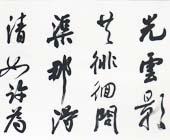 光雲影
共徘徊問
渠那得
清如許為